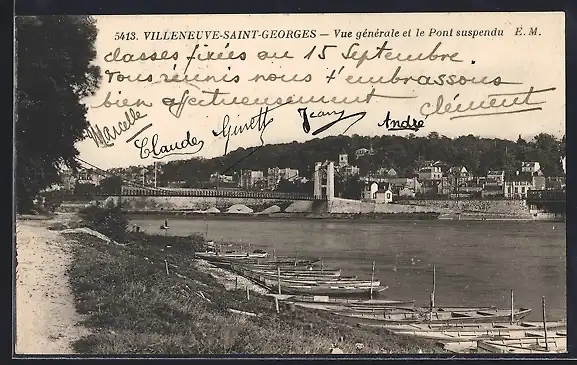 5413. VILLENEUVE-SAINT-GEORGES – Vue générale et le Pont suspendu E. M.
classes fixées au 15 Septembre.
Tous réunis nous t'embrassons
bien affectueusement
Clément
Marcelle
Claude
Ginott
Jeany
André